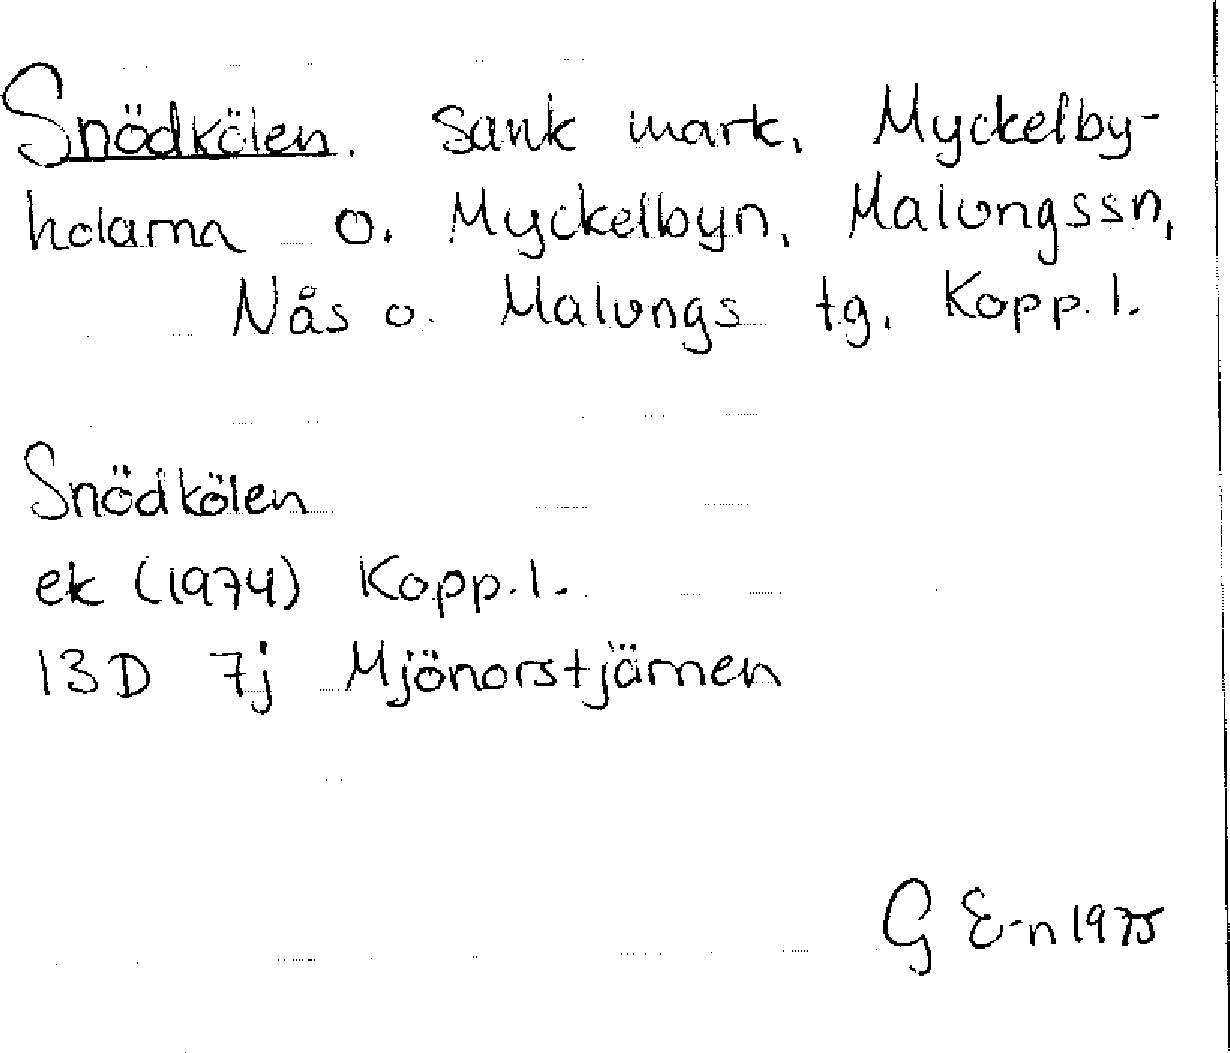 Snödkölen. Sank mark, Myckelby-
holarna o. Myckelbyn, Malungssn,
Nås o. Malungs tg, Kopp. l.
Snödkölen
ek (1974) Kopp. l.
13D 7j Mjönorstjärnen
G E-n 1975